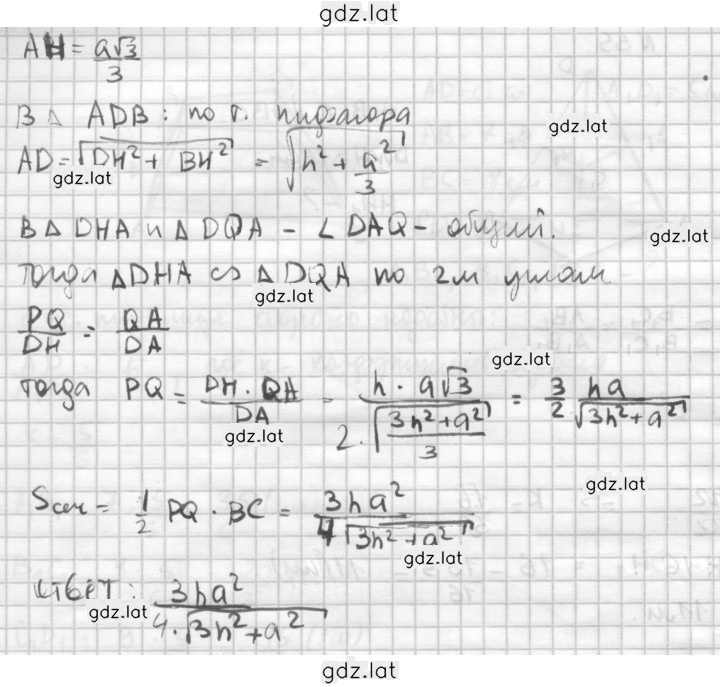 gdz.lat
AH = a√3/3
В △ ADB : по т. пифагора
gdz.lat
AD = √(DH² + BH²) = √(h² + a²/3)
gdz.lat
В △ DHA и △ DQA – ∠DAQ – общий.
gdz.lat
тогда △DHA ∽ △DQA по 2м углам
gdz.lat
PQ/DH = QA/DA
gdz.lat
тогда PQ = DH · QA/DA = h · a√3/(2 · √((3h² + a²)/3)) = 3/2 ha/√(3h² + a²)
gdz.lat
gdz.lat
Sсеч = 1/2 PQ · BC = 3ha²/(4√(3h² + a²))
gdz.lat
Ответ : 3ha²/(4 · √(3h² + a²))
gdz.lat
gdz.lat